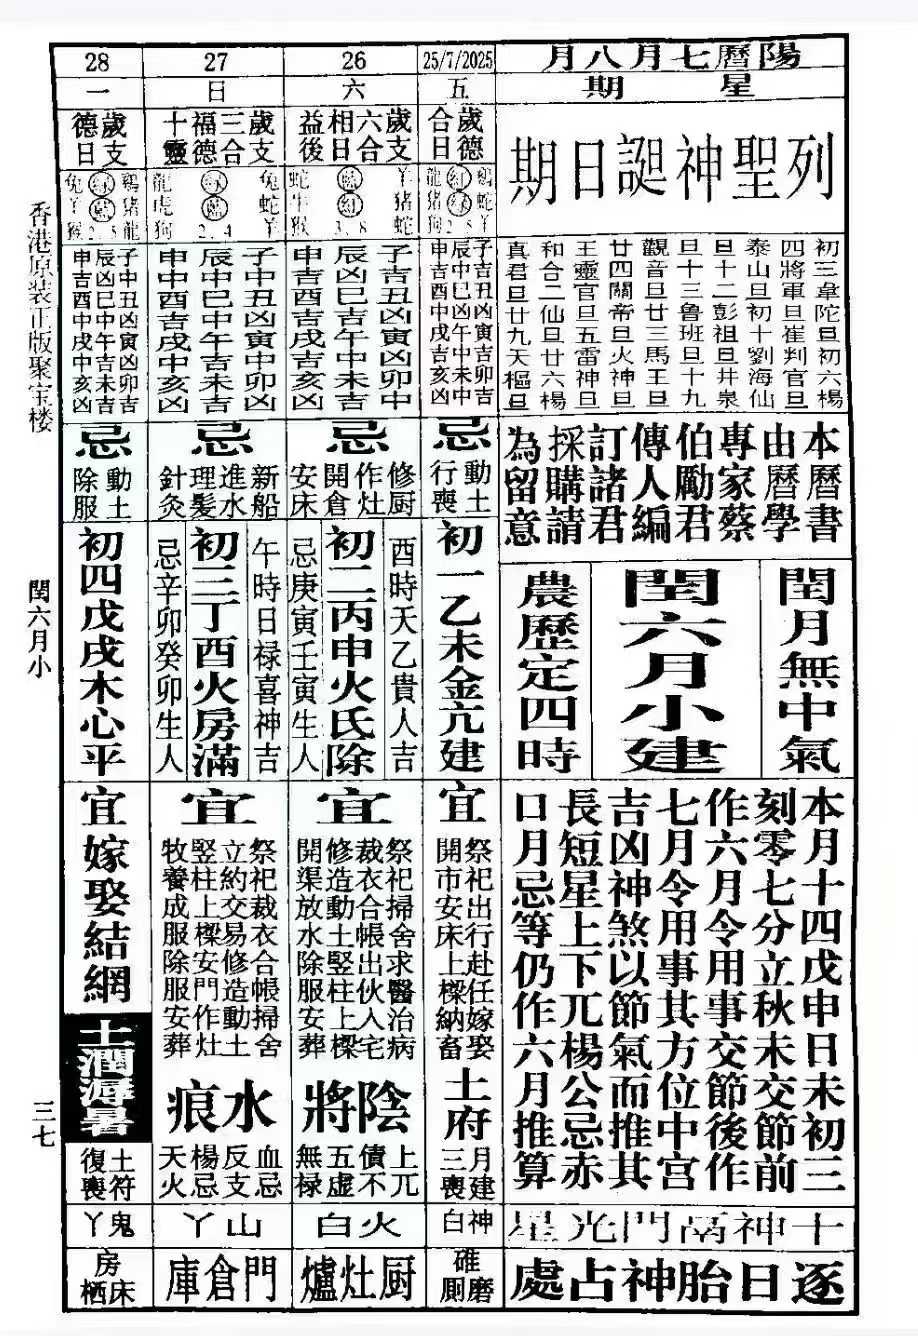 陽曆七月八月
星期
列聖神誕日期
初三韋陀旦初六楊
四將軍旦崔判官旦
泰山旦初十劉海仙
旦十二彭祖旦井泉
旦十三魯班旦十九
觀音旦廿三馬王旦
廿四關帝旦火神旦
王靈官旦五雷神旦
和合二仙旦廿六楊
真君旦廿九天樞旦
本曆書
由曆學
專家蔡
伯勵君
傳人編
訂諸君
採購請
為留意
閏月無中氣
閏六月小建
農歷定四時
本月十四戊申日未初三
刻零七分立秋未交節前
作六月令用事交節後作
七月令用事其方位中宮
吉凶神煞以節氣而推其
長短星上下兀楊公忌赤
口月忌等仍作六月推算
十神鬲門光星
逐日胎神占處
25/7/2025
五
歲德
合日
鷄蛇羊
紅綠
龍豬狗
子吉丑凶寅凶卯吉
辰中巳凶午中未中
申吉酉中戌吉亥凶
忌
動土
行喪
初一乙未金亢建
宜
祭祀出行赴任嫁娶
開市安床上樑納畜
土府
月建
三喪
神白
碓磨
厠
26
六
歲支
六合
相日
益後
羊豬蛇
藍紅
3.8
蛇牛猴
子吉丑凶寅凶卯中
辰凶巳吉午中未吉
申吉酉吉戌吉亥凶
忌
修厨
作灶
開倉
安床
酉時天乙貴人吉
初二丙申火氐除
忌庚寅壬寅生人
宜
祭祀掃舍求醫治病
裁衣合帳出伙入宅
修造動土竪柱上樑
開渠放水除服安葬
陰將
上兀
債不
五虛
無祿
火白
厨灶爐
27
日
歲支
三合
福德
十靈
兔蛇羊
綠藍
2.4
龍虎狗
子中丑凶寅中卯凶
辰中巳中午吉未吉
申中酉吉戌中亥凶
忌
新船
進水
理髪
針灸
午時日禄喜神吉
初三丁酉火房滿
忌辛卯癸卯生人
宜
祭祀裁衣合帳掃舍
立約交易修造動土
竪柱上樑安門作灶
牧養成服除服安葬
水痕
血忌
反支
楊忌
天火
山丫
門倉庫
28
一
歲支
德日
鷄豬龍
綠藍
兔羊猴
子中丑凶寅凶卯吉
辰凶巳中午吉未吉
申吉酉中戌中亥凶
忌
動土
除服
初四戊戌木心平
宜
嫁娶結網
土潤溽暑
土符
復喪
鬼丫
房床
栖
香港原装正版聚宝楼
閏六月小
三七